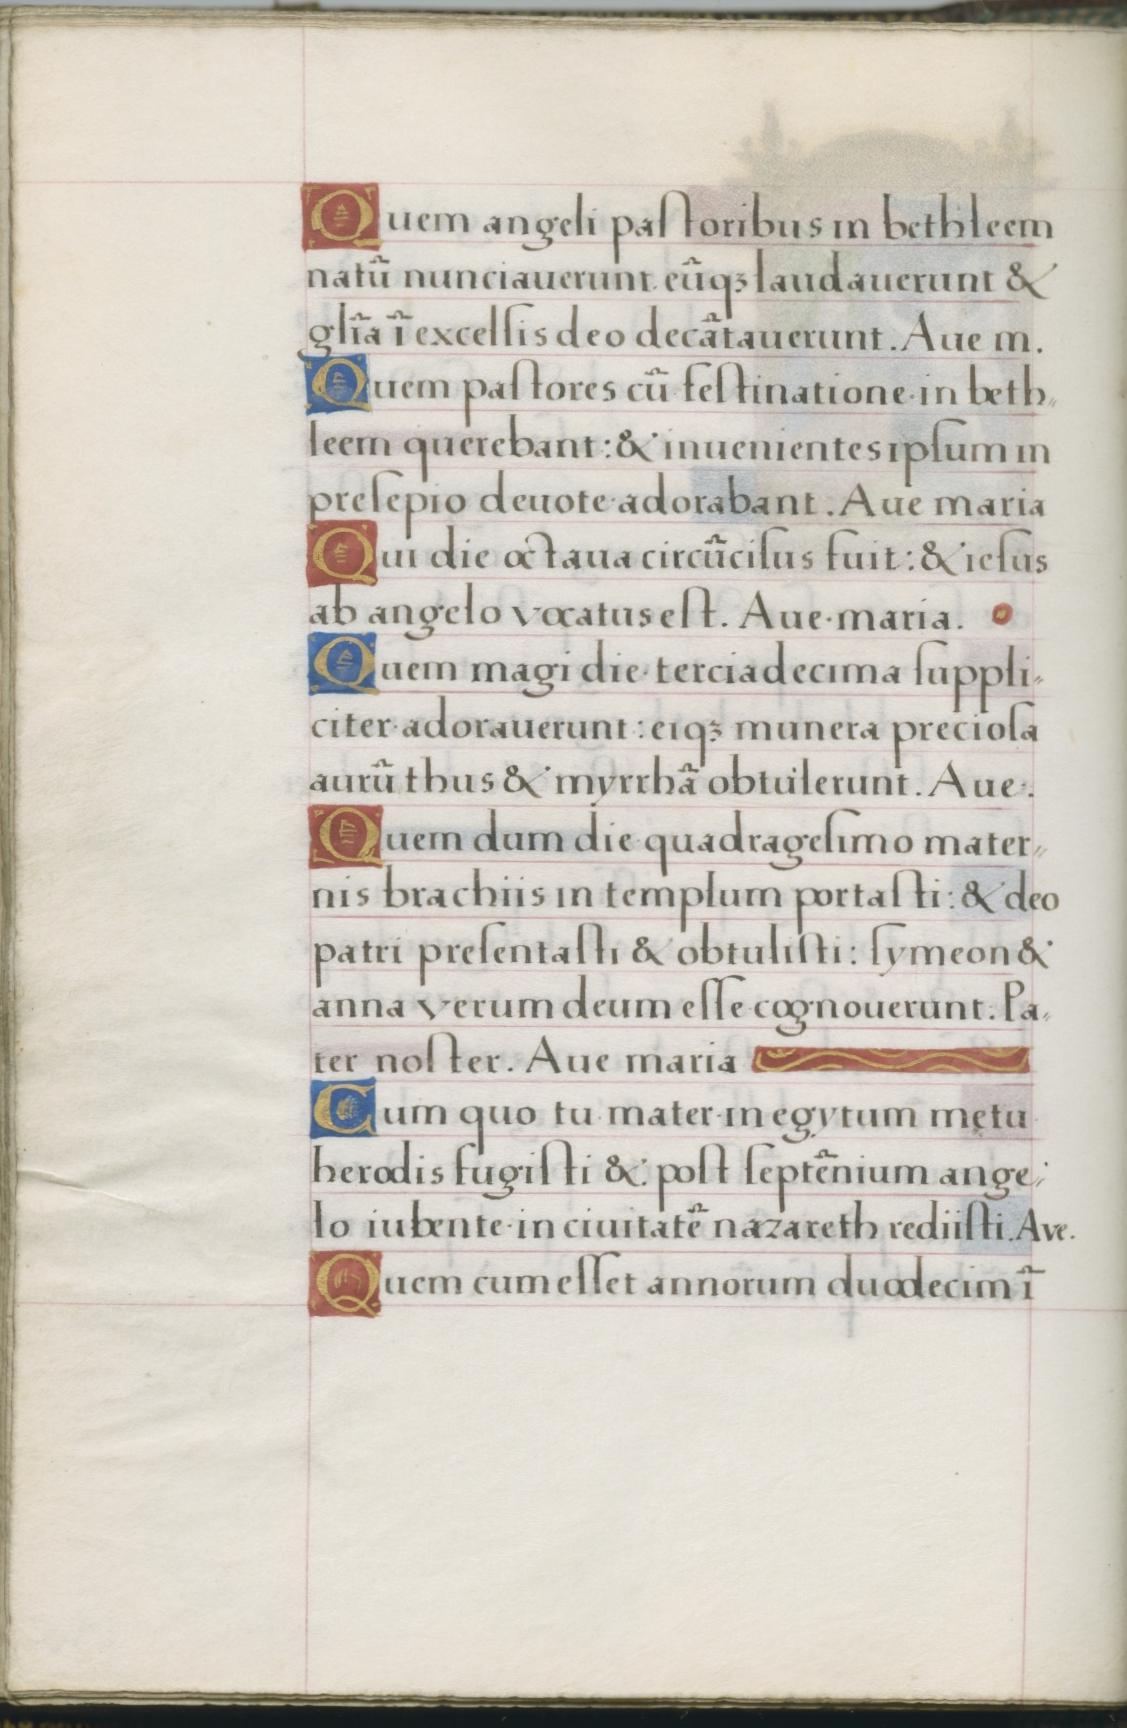 Quem angeli paſtoribus in bethleem
natũ nunciauerunt. eũqꝫ laudauerunt &
glr̃ia ĩ excelſis deo decãtauerunt. Aue m.
Quem paſtores cũ feſtinatione in beth„
leem querebant: & inuenientes ipſum in
preſepio deuote adorabant. Aue maria
Qui die octaua circũciſus fuit: & ieſus
ab angelo vocatus eſt. Aue maria.
Quem magi die terciadecima ſuppli„
citer adorauerunt: eiqꝫ munera precioſa
aurũ thus & myrrhã obtulerunt. Aue.
Quem dum die quadrageſimo mater„
nis brachiis in templum portaſti: & deo
patri preſentaſti & obtuliſti: ſymeon &
anna verum deum eſſe cognouerunt. Pa„
ter noſter. Aue maria
Cum quo tu mater in egytum mętu
herodis fugiſti &: poſt ſeptẽnium ange„
lo iubente in ciuitatẽ nazareth rediiſti. Ave.
Quem cum eſſet annorum duodecim ĩ